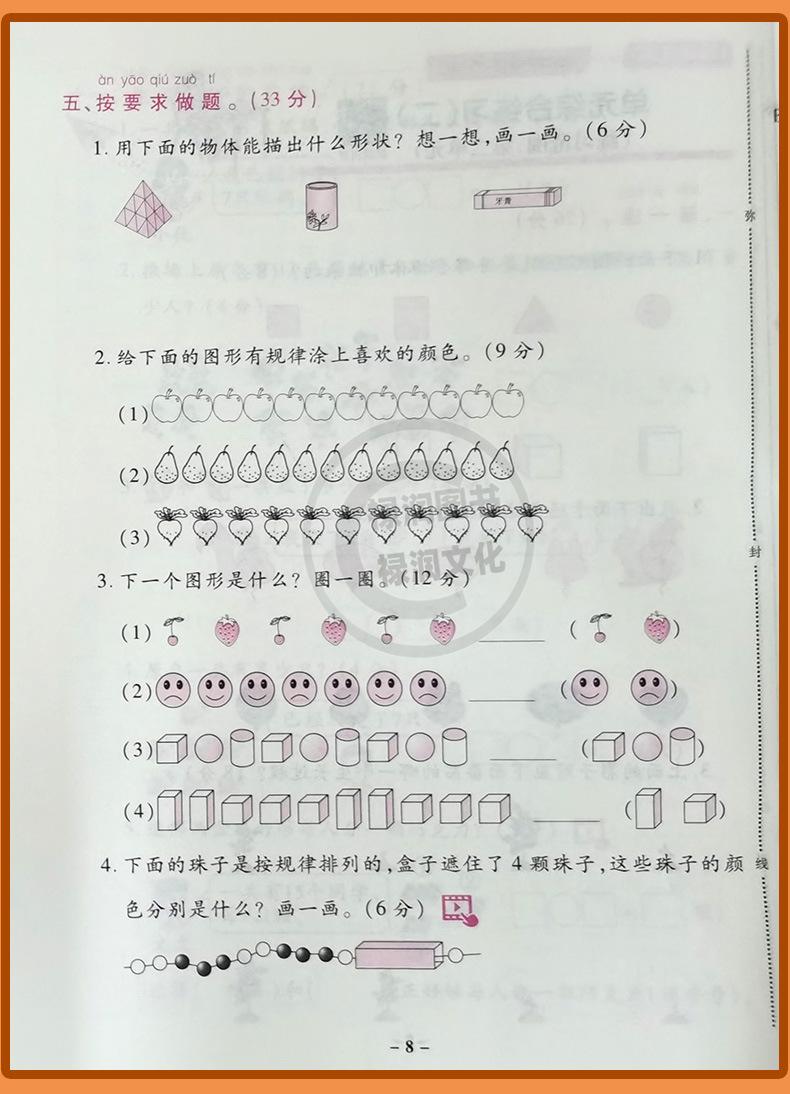 àn yāo qiú zuò tí
五、按要求做题。(33分)
1.用下面的物体能描出什么形状？想一想,画一画。(6分)
牙膏
2.给下面的图形有规律涂上喜欢的颜色。(9分)
(1)
(2)
(3)
3.下一个图形是什么？圈一圈。(12分)
(1) ( )
(2) ( )
(3) ( )
(4) ( )
4.下面的珠子是按规律排列的,盒子遮住了4颗珠子,这些珠子的颜
色分别是什么？画一画。(6分)
- 8 -
弥
封
线
禄润图书
禄润文化